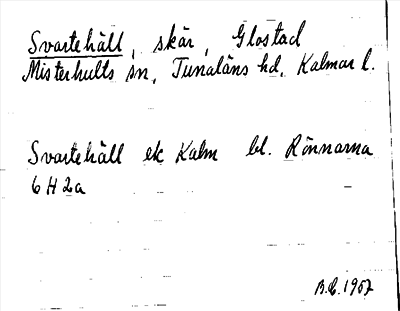 Svartehäll, skär, Glostad
Misterhults sn, Tunaläns hd, Kalmar l.
Svartehäll ek Kalm bl. Rönnarna
6 H 2a
1957